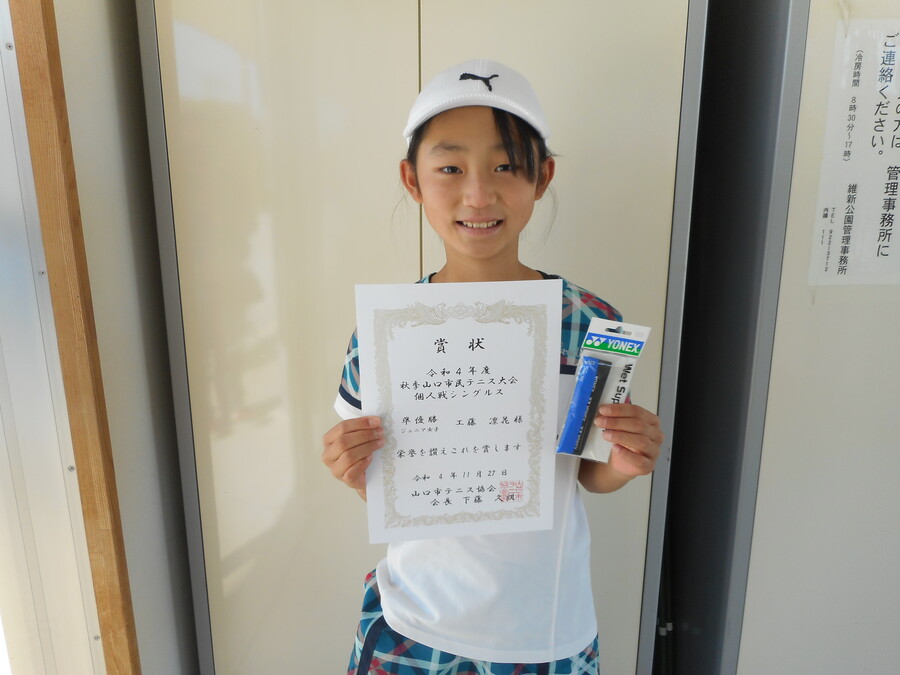 賞状
令和4年度
秋季山口市民テニス大会
個人戦シングルス
準優勝 工藤 凛花様
ジュニア女子
栄誉を讃えこれを賞します
令和 4年11月27日
山口市テニス協会
会長 下藤
YONEX
Wet Sup
ご連絡ください。
の方は 管理事務所に
(冷房時間 8時30分~17時)
維新公園管理事務所
TEL
内線